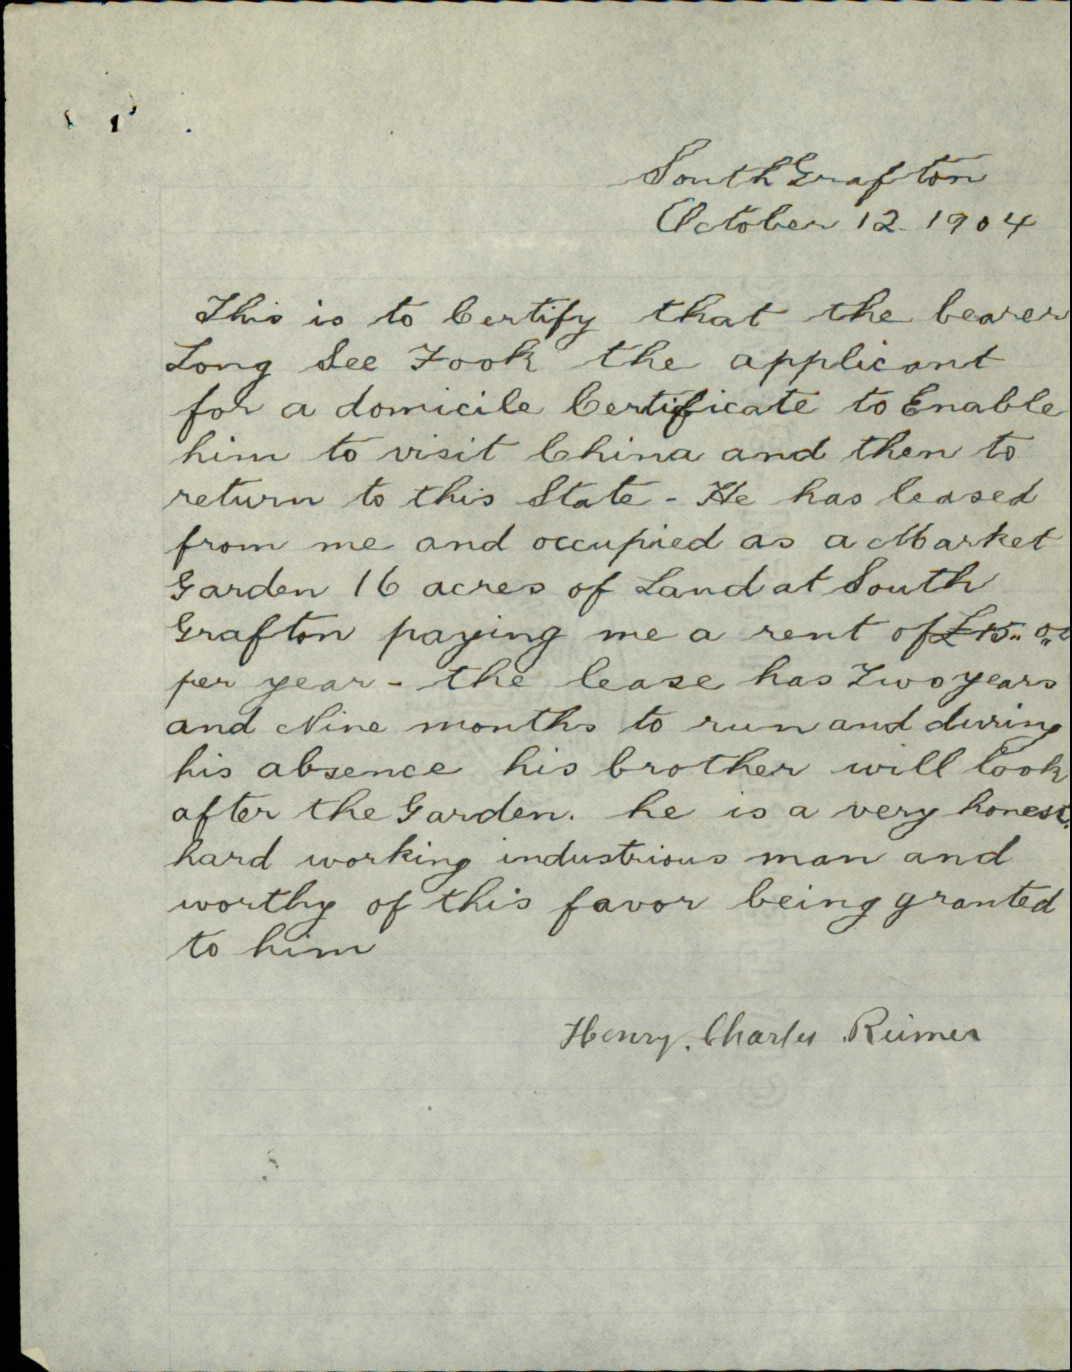 South Grafton
October 12. 1904
This is to Certify that the bearer
Long See Fook the applicant
for a domicile Certificate to Enable
him to visit China and then to
return to this State - He has leased
from me and occupied as a Market
Garden 16 acres of Land at South
Grafton paying me a rent of £15..
per year - the lease has Two years
and Nine months to run and during
his absence his brother will look
after the Garden. he is a very honest.
hard working industrious man and
worthy of this favor being granted
to him
Henry. Charles